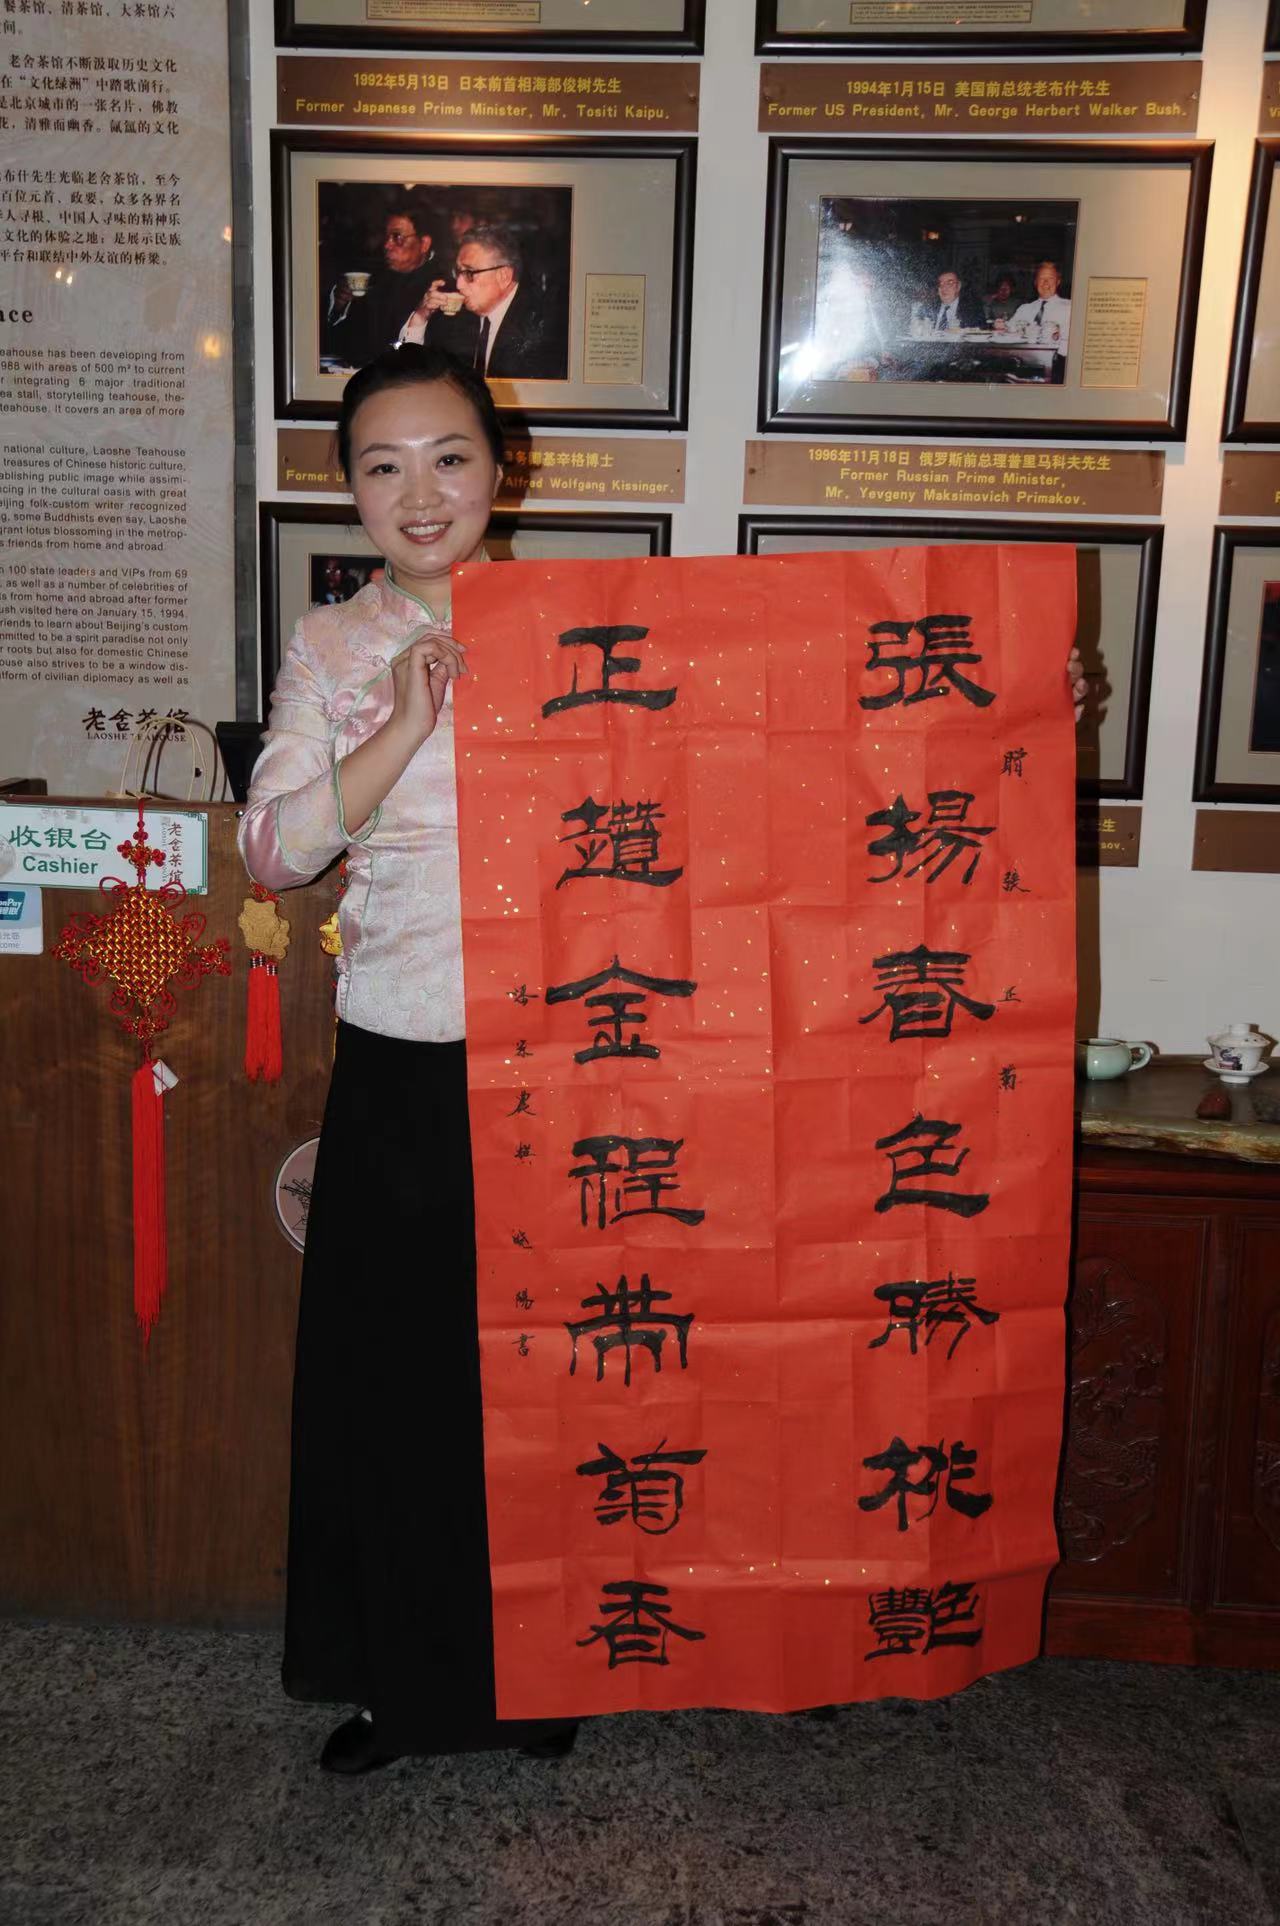 餐茶馆、清茶馆、大茶馆六
间。
老舍茶馆不断汲取历史文化
在“文化绿洲”中踏歌前行。
是北京城市的一张名片，佛教
花，清雅而幽香。氤氲的文化
布什先生光临老舍茶馆，至今
百位元首、政要，众多各界名
人寻根、中国人寻味的精神乐
文化的体验之地；是展示民族
平台和联结中外友谊的桥梁。
ace
eahouse has been developing from
988 with areas of 500 m² to current
r integrating 6 major traditional
ea stall, storytelling teahouse, the-
teahouse. It covers an area of more
national culture, Laoshe Teahouse
treasures of Chinese historic culture,
ablishing public image while assimi-
ncing in the cultural oasis with great
eijing folk-custom writer recognized
g, some Buddhists even say, Laoshe
grant lotus blossoming in the metrop-
s friends from home and abroad.
n 100 state leaders and VIPs from 69
, as well as a number of celebrities of
ts from home and abroad after former
ush visited here on January 15, 1994.
riends to learn about Beijing's custom
mmitted to be a spirit paradise not only
r roots but also for domestic Chinese
ouse also strives to be a window dis-
atform of civilian diplomacy as well as
老舍茶馆
LAOSHE TEAHOUSE
1992年5月13日 日本前首相海部俊树先生
Former Japanese Prime Minister, Mr. Tositi Kaipu.
1994年1月15日 美国前总统老布什先生
Former US President, Mr. George Herbert Walker Bush.
务卿基辛格博士
Former U
Alfred Wolfgang Kissinger.
1996年11月18日 俄罗斯前总理普里马科夫先生
Former Russian Prime Minister,
Mr. Yevgeny Maksimovich Primakov.
先生
sov.
收银台
Cashier
老舍茶馆
張揚春色勝桃艷
贈 張正菊
正鑽金程帶菊香
農撰 曉陽書